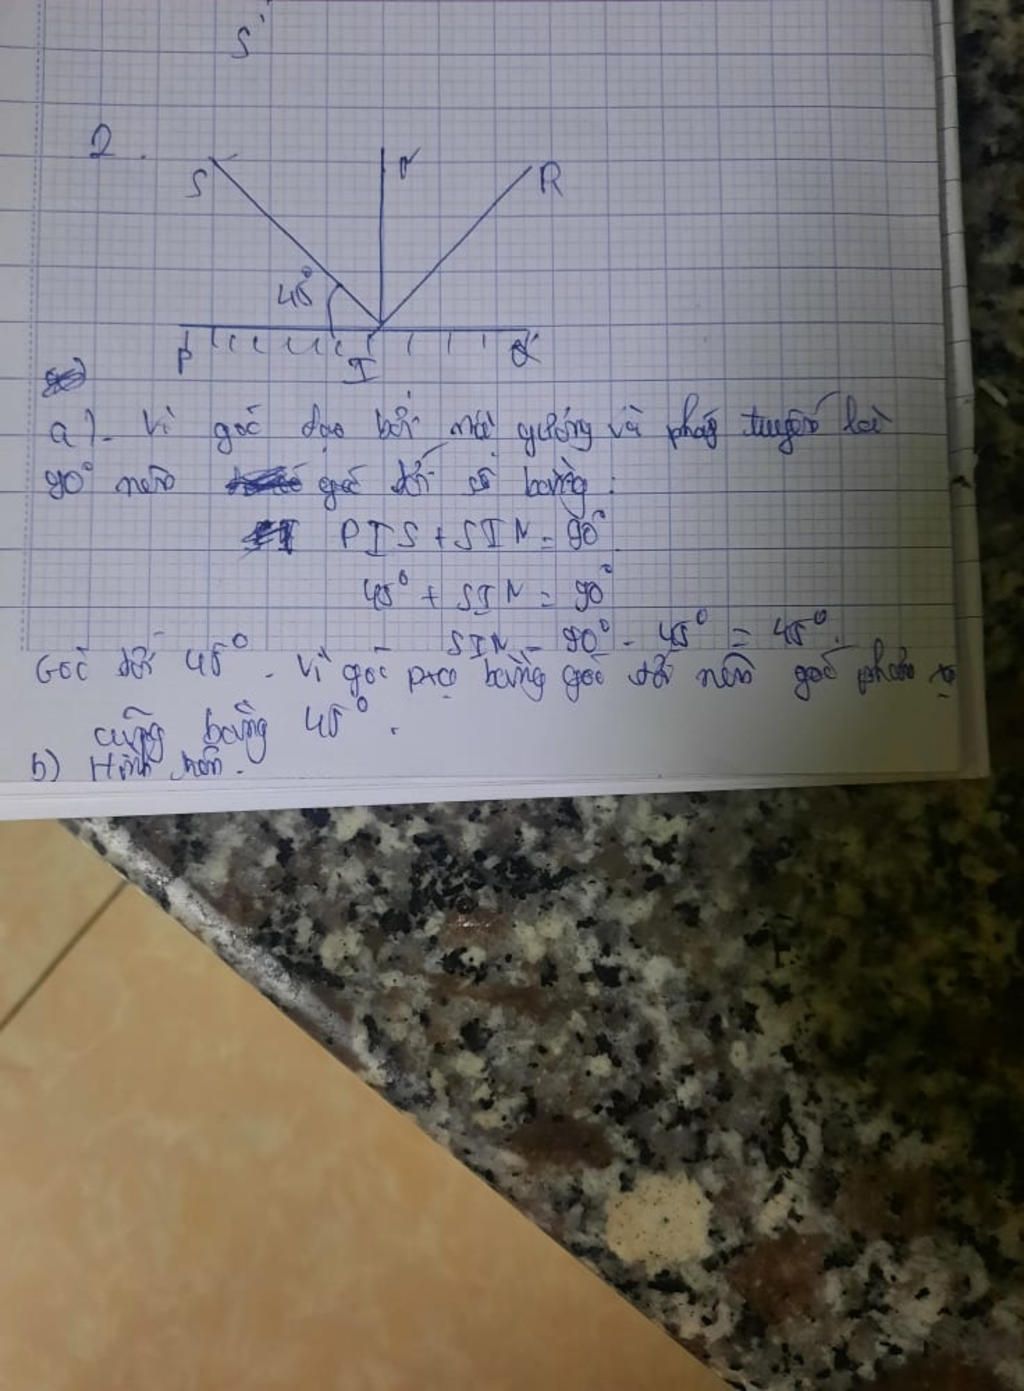 S'
2.
S
N
R
45°
P
I
a). Vì góc tạo bởi mặt gương và pháp tuyến là
90° nên góc tới sẽ bằng:
PIS + SIN = 90°.
45° + SIN = 90°
SIN = 90° - 45° = 45°.
Góc tới 45°. Vì góc pxạ bằng góc tới nên góc phản xạ
cũng bằng 45°.
b) Hình trên.